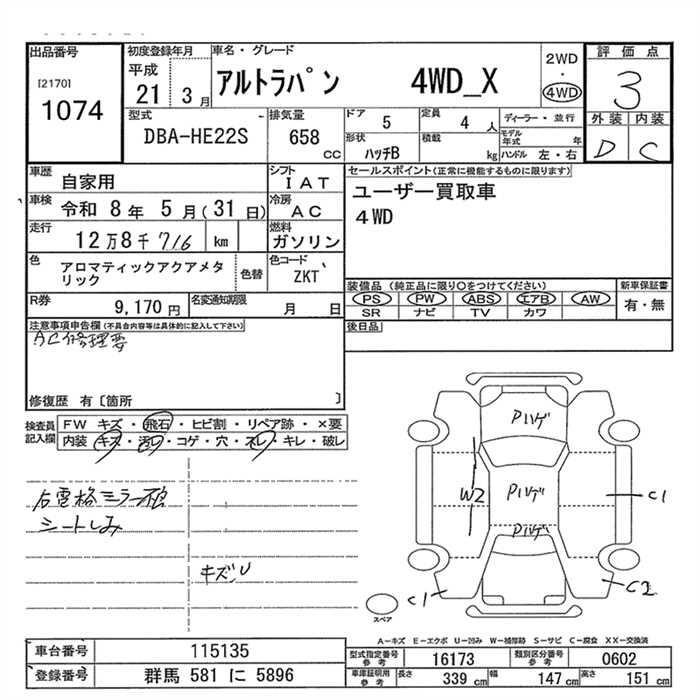 出品番号
[2170]
1074
初度登録年月
平成
21 3月
車名・グレード
アルトラパン 4WD_X
2WD
・
4WD
評価点
3
外装 内装
D C
型式
DBA-HE22S
排気量
658 CC
ドア 5
定員 4 人
ディーラー・並行
形状 ハッチB
積載 kg
モデル年式 年
ハンドル 左・右
車歴 自家用
シフト IAT
車検 令和 8年 5月(31日)
冷房 AC
走行 12万8千716 km
燃料 ガソリン
色 アロマティックアクアメタリック
色替
色コード ZKT
R券 9,170円
名変通知期限 月 日
セールスポイント(正常に機能するものに限ります)
ユーザー買取車
4WD
装備品(純正品に限り○をつけてください)
新車保証書
PS PW ABS エアB AW
有・無
SR ナビ TV カワ
後日品
注意事項申告欄(不具合内容等は具体的に記入して下さい)
AC修理要
修復歴 有〔箇所 〕
検査員記入欄
FW キズ・飛石・ヒビ割・リペア跡・×要
内装 キズ・汚レ・コゲ・穴・スレ・キレ・破レ
右電格ミラー
シートしみ
キズU
Pハゲ
W2
Pハゲ
C1
Pハゲ
C1
C2
スペア
A−キズ E−エクボ U−凹み W−補修跡 S−サビ C−腐食 XX−交換済
車台番号 115135
登録番号 群馬 581 に 5896
型式指定番号 参考 16173
類別区分番号 参考 0602
車庫証明用 参考 長さ 339 cm 幅 147 cm 高さ 151 cm